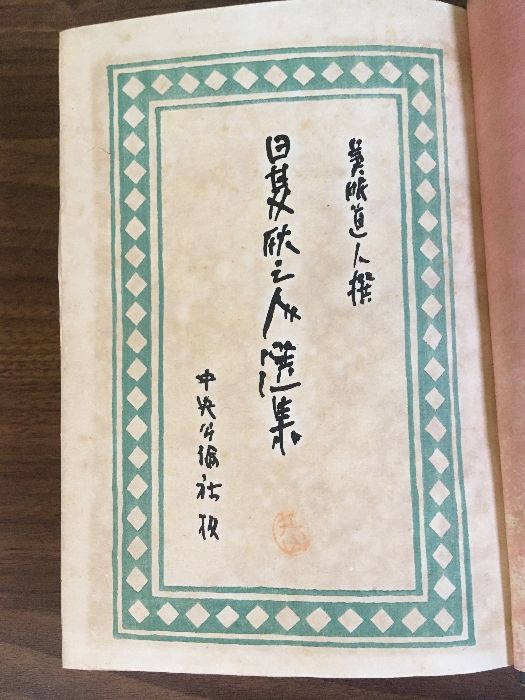 黄眠道人撰
日夏耿之介選集
中央公論社版